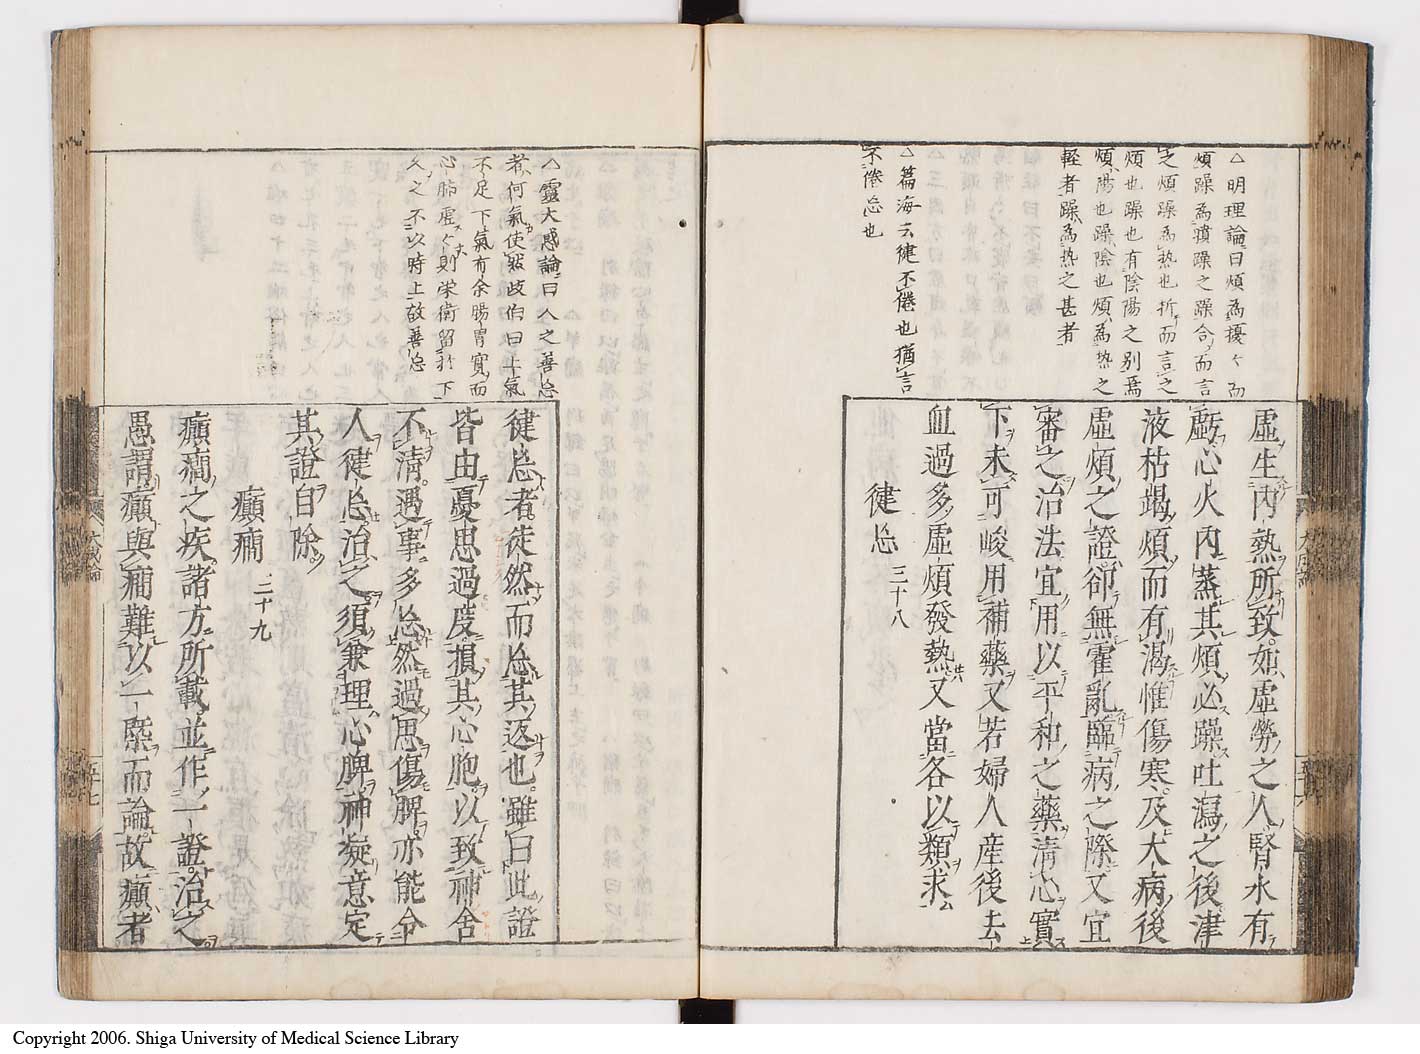 △明理論曰煩為擾々而
煩躁為憤躁之躁合而言
之煩躁為热也折而言之
煩也躁也有陰陽之別焉
煩陽也躁陰也煩為热之
軽者躁為热之甚者
△篇海云㣔不倦也猶言
不倦忘也
虛生內熱所致如虛勞之人腎水有
虧心火內蒸其煩必躁吐瀉之後津
液枯竭煩而有渴惟傷寒及大病後
虛煩之證卻無霍亂臨病之際又宜
審之治法宜用以平和之藥清心實
下未可峻用補藥又若婦人産後去
血過多虛煩發熱又當各以類求
㣔忘 三十八
△靈大惑論曰人之善忘
者何氣使然歧伯曰上氣
不足下氣有余腸胃實而
心肺虛々則栄衛留於下
久之不以時上故善忘
㣔忘者徒然而忘其返也雖曰此證
皆由憂思過度損其心胞以致神舍
不清遇事多忘然過思傷脾亦能令
人㣔忘治之須兼理心脾神凝意定
其證自除
癲癇 二十九
癲癇之疾諸方所載並作一證治之
愚謂癲與癇難以一槩而論故癲者
大成論
五十七
Copyright 2006. Shiga University of Medical Science Library